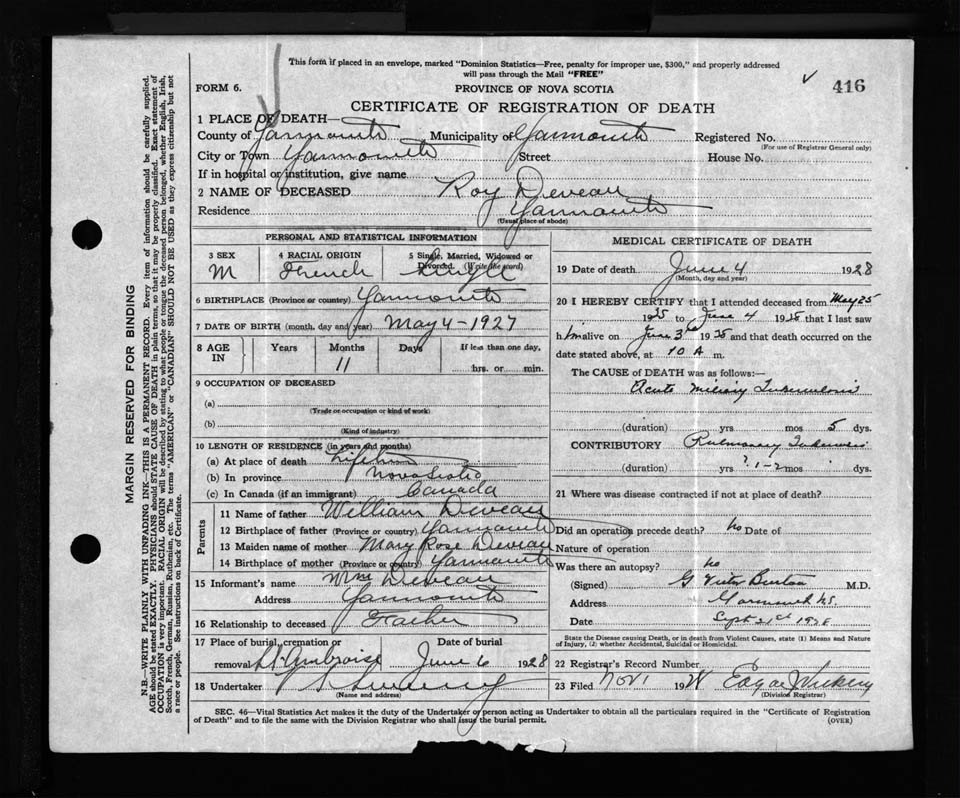 This form if placed in an envelope, marked "Dominion Statistics—Free, penalty for improper use, $300," and properly addressed
will pass through the Mail "FREE"
FORM 6. PROVINCE OF NOVA SCOTIA 416
CERTIFICATE OF REGISTRATION OF DEATH
1 PLACE OF DEATH—
County of Yarmouth Municipality of Yarmouth Registered No.
(For use of Registrar General only)
City or Town Yarmouth Street House No.
If in hospital or institution, give name
2 NAME OF DECEASED Roy Deveau
Residence Yarmouth
(Usual place of abode)
PERSONAL AND STATISTICAL INFORMATION
3 SEX 4 RACIAL ORIGIN 5 Single, Married, Widowed or
Divorced. (Write the word)
M French Single
6 BIRTHPLACE (Province or country) Yarmouth
7 DATE OF BIRTH (month, day and year) May 4 - 1927
8 AGE IN Years Months Days If less than one day,
11 hrs. or min.
9 OCCUPATION OF DECEASED
(a)
(Trade or occupation or kind of work)
(b)
(Kind of industry)
10 LENGTH OF RESIDENCE (in years and months)
(a) At place of death Lifetime
(b) In province Nova Scotia
(c) In Canada (if an immigrant) Canada
Parents
11 Name of father William Deveau
12 Birthplace of father (Province or country) Yarmouth
13 Maiden name of mother Mary Rose Deveau
14 Birthplace of mother (Province or country) Yarmouth
15 Informant's name Wm Deveau
Address Yarmouth
16 Relationship to deceased Father
17 Place of burial, cremation or Date of burial
removal St. Ambroise June 6 1928
18 Undertaker V S Sweeny
(Name and address)
MEDICAL CERTIFICATE OF DEATH
19 Date of death June 4 1928
(Month, day and year)
20 I HEREBY CERTIFY that I attended deceased from May 25
to June 4 that I last saw
him alive on June 3rd and that death occurred on the
date stated above, at 10 A m.
The CAUSE of DEATH was as follows:—
Acute miliary Tuberculosis
(duration) yrs mos 5 dys.
CONTRIBUTORY Pulmonary
(duration) yrs ? 1-2 mos dys.
21 Where was disease contracted if not at place of death?
Did an operation precede death? no Date of
Nature of operation
Was there an autopsy? no
(Signed) G Victor Burton M.D.
Address Yarmouth N.S.
Date Sept 21st 1928
State the Disease causing Death, or in death from Violent Causes, state (1) Means and Nature
of Injury, (2) whether Accidental, Suicidal or Homicidal.
22 Registrar's Record Number
23 Filed Nov 1 1928 Edgar J Vickery
(Division Registrar)
SEC. 46—Vital Statistics Act makes it the duty of the Undertaker or person acting as Undertaker to obtain all the particulars required in the "Certificate of Registration
of Death" and to file the same with the Division Registrar who shall issue the burial permit. (OVER)
MARGIN RESERVED FOR BINDING
N.B.—WRITE PLAINLY WITH UNFADING INK—THIS IS A PERMANENT RECORD. Every item of information should be carefully supplied.
AGE should be stated EXACTLY. PHYSICIANS should STATE CAUSE OF DEATH in plain terms, so that it may be properly classified. Exact statement of
OCCUPATION is very important. RACIAL ORIGIN will be described by stating to what people or tongue the deceased person belonged, whether English, Irish,
Scotch, French, German, Russian, Ruthenian, etc. The terms "AMERICAN" or "CANADIAN" SHOULD NOT BE USED as they express citizenship but not
a race or people. See instructions on back of Certificate.